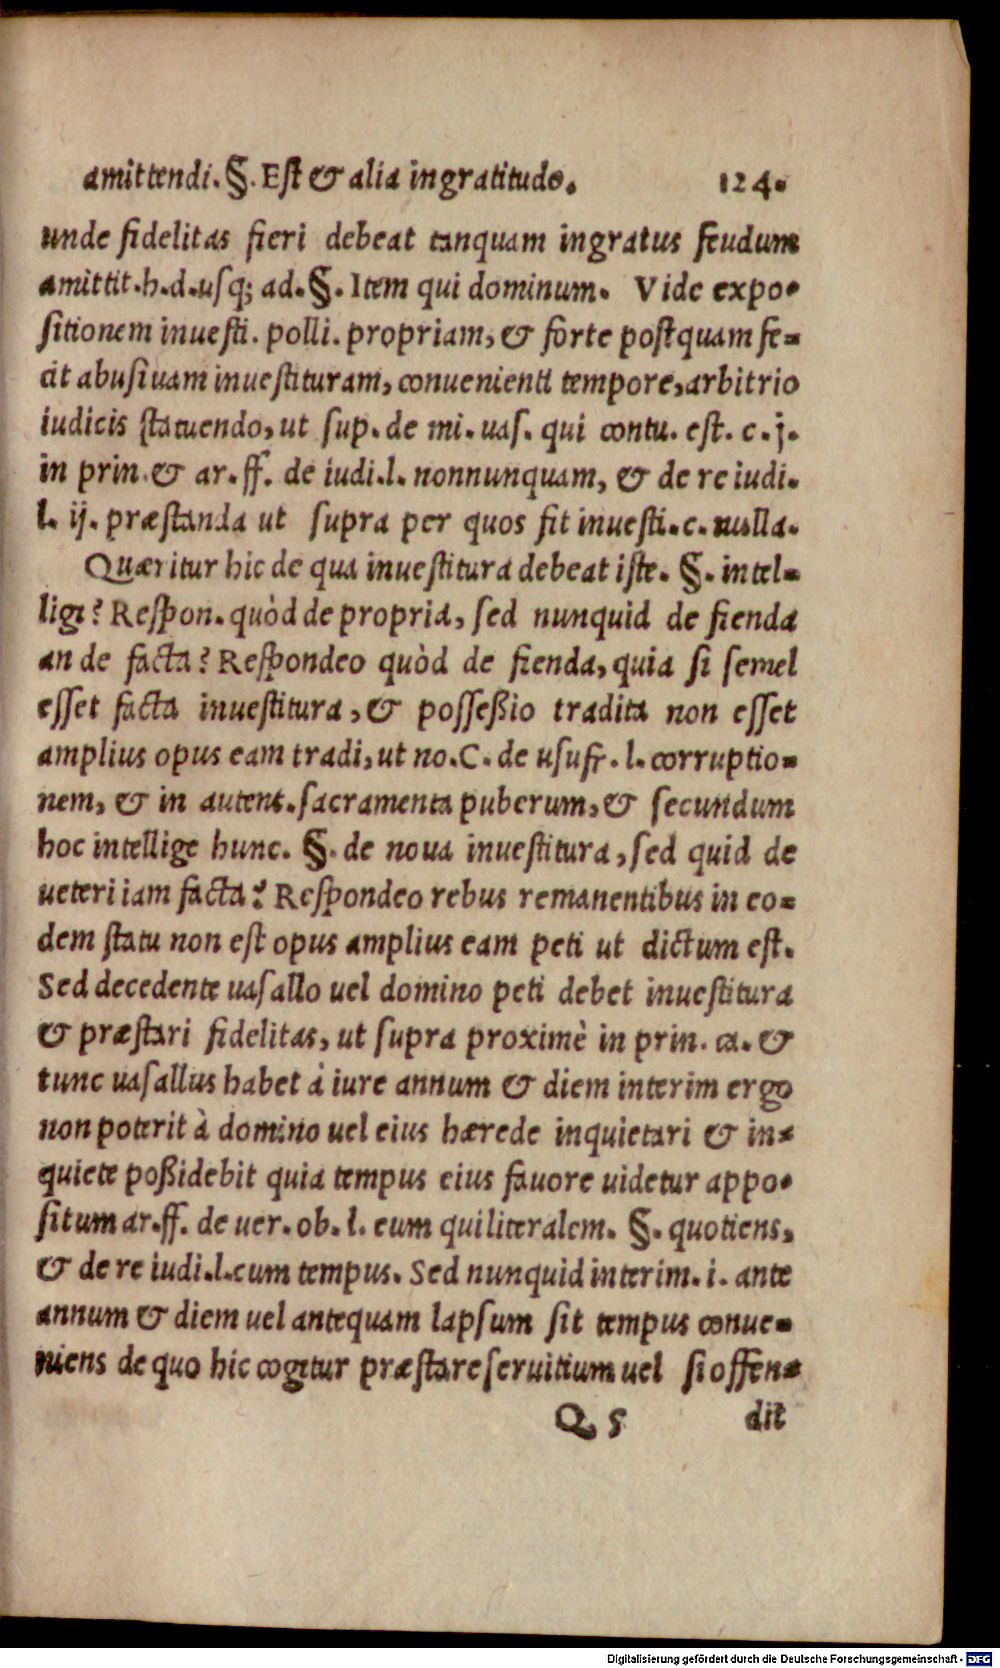 amittendi. §. Est & alia ingratitudo. 124.
unde fidelitas fieri debeat tanquam ingratus feudum
amittit.h.d.usq; ad.§. Item qui dominum. Vide expo-
sitionem inuesti. polli. propriam, & forte postquam fe-
cit abusiuam inuestituram, conuenienti tempore, arbitrio
iudicis statuendo, ut sup. de mi. uas. qui contu. est. c. j.
in prin. & ar. ff. de iudi.l. nonnunquam, & de re iudi.
l. ij. præstanda ut supra per quos fit inuesti.c. nulla.
Quæritur hic de qua inuestitura debeat iste. §. intel-
ligi? Respon. quòd de propria, sed nunquid de fienda
an de facta? Respondeo quòd de fienda, quia si semel
esset facta inuestitura, & posseßio tradita non esset
amplius opus eam tradi, ut no. C. de usufr. l. corruptio-
nem, & in autent. sacramenta puberum, & secundum
hoc intellige hunc. §. de noua inuestitura, sed quid de
ueteri iam facta? Respondeo rebus remanentibus in eo-
dem statu non est opus amplius eam peti ut dictum est.
Sed decedente uasallo uel domino peti debet inuestitura
& præstari fidelitas, ut supra proximè in prin. ca. &
tunc uasallus habet à iure annum & diem interim ergo
non poterit à domino uel eius hærede inquietari & in-
quiete poßidebit quia tempus eius fauore uidetur appo-
situm ar. ff. de uer. ob. l. eum qui literalem. §. quotiens,
& de re iudi.l.cum tempus. Sed nunquid interim. i. ante
annum & diem uel antequam lapsum sit tempus conue-
niens de quo hic cogitur præstare seruitium uel si offen-
Q 5 dit
Digitalisierung gefördert durch die Deutsche Forschungsgemeinschaft - DFG